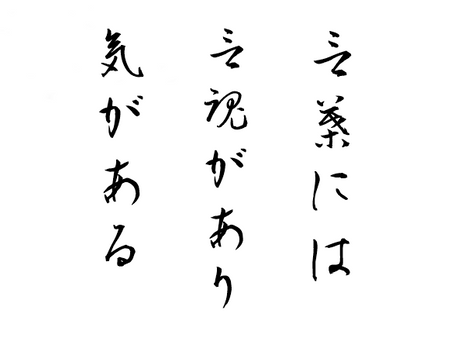 言葉には
言魂があり
気がある